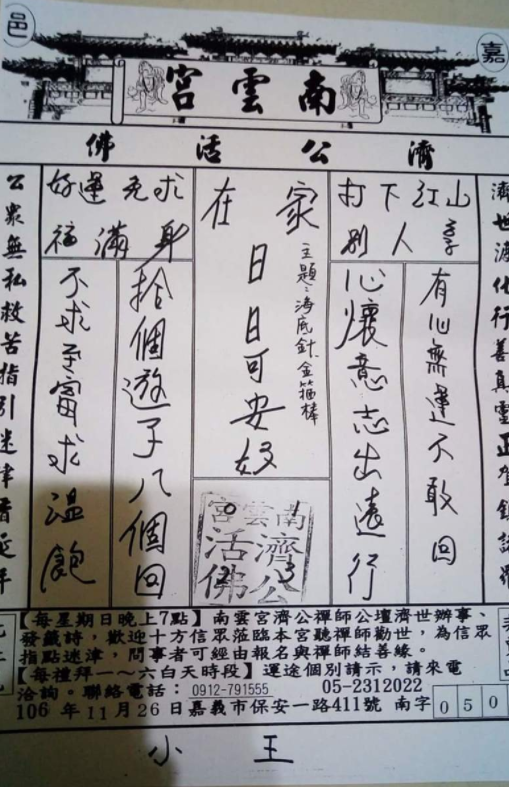 嘉邑
南雲宮
濟公活佛
打下江山
別人享
有心無運不敢回
心懷意志出遠行
在家
日日可安好
主題:海底針、金箍棒
南雲宮
濟公
活佛
好運免求
福滿身
拾個遊子八個回
不求至富求溫飽
公眾無私救苦指引迷津香延年
【每星期日晚上7點】南雲宮濟公禪師公壇濟世辦事、
發籤詩,歡迎十方信眾蒞臨本宮聽禪師勸世,為信眾
指點迷津,問事者可經由報名與禪師結善緣。
【每禮拜一~六白天時段】運途個別請示,請來電
洽詢。聯絡電話:0912-791555 05-2312022
106 年11月26日嘉義市保安一路411號 南字 050
小王